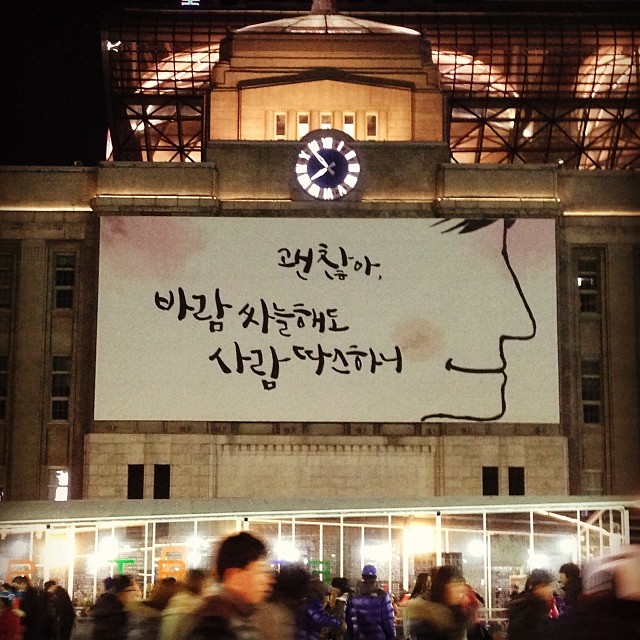 괜찮아,
바람 싸늘해도
사람 따스하니